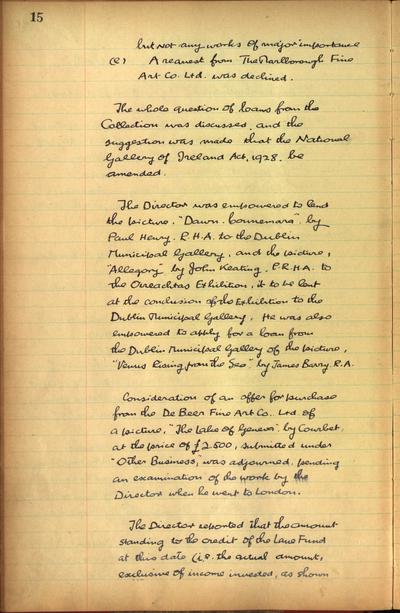 15
but not any works of major importance
(e) A request from The Marlborough Fine
Art Co. Ltd. was declined.
The whole question of loans from the
Collection was discussed, and the
suggestion was made that the National
Gallery of Ireland Act, 1928, be
amended.
The Director was empowered to lend
the picture, "Dawn. Connemara", by
Paul Henry, R.H.A. to the Dublin
Municipal Gallery, and the picture,
"Allegory" by John Keating, P.R.H.A. to
the Oireachtas Exhibition, it to be lent
at the conclusion of the Exhibition to the
Dublin Municipal Gallery. He was also
empowered to apply for a loan from
the Dublin Municipal Gallery of the picture,
"Venus Rising from the Sea", by James Barry, R.A.
Consideration of an offer for purchase
from the De Beer Fine Art Co. Ltd of
a picture, "The Lake of Geneva", by Courbet,
at the price of £2,500, submitted under
"Other Business", was adjourned, pending
an examination of the work by the
Director when he went to London.
The Director reported that the amount
standing to the credit of the Lane Fund
at this date (i.e. the actual amount,
exclusive of income invested, as shown